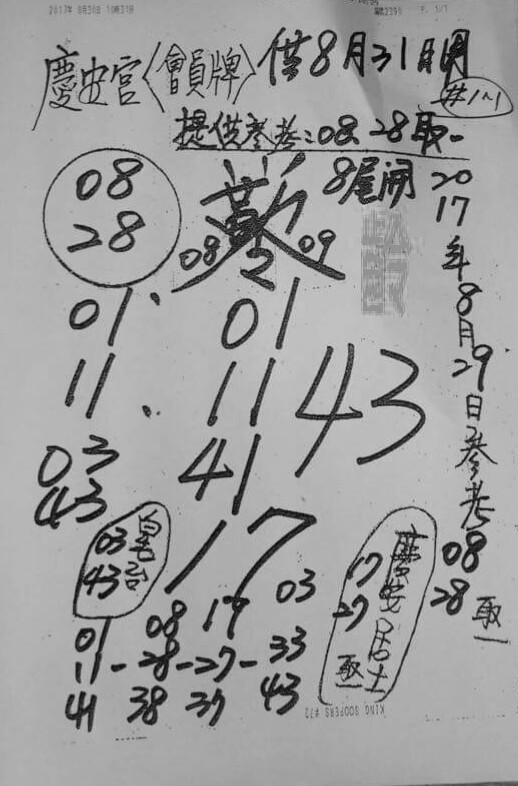 2013年 8月30日 10時31分
2395 P. 1/1
慶安宮〈會員牌〉供8月31日開
提供參考:08、28取一
8尾開
08
28
08 09
2017年8月29日參考08
28取一
01 01
11 11 43
41
03
43
17
03
43
慶安居士
17
27
取一
01 08 17 03
11-28-27-33
41 38 37 43
KING SOOPERS #72